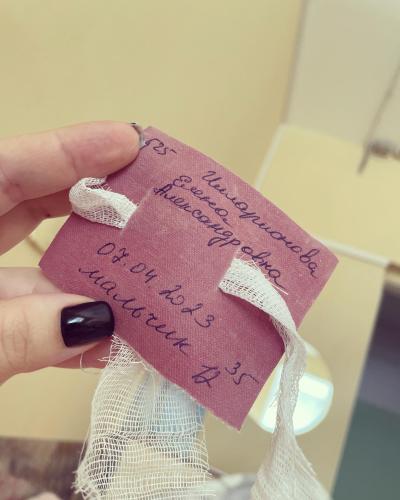 525 Илларионова
Елена
Александровна
07.04 2023
мальчик 12 35